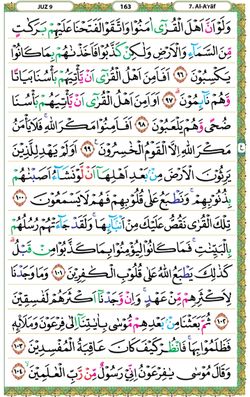 JUZ 9 163 7. Al-A'rāf
وَلَوْ اَنَّ اَهْلَ الْقُرٰٓى اٰمَنُوْا وَاتَّقَوْا لَفَتَحْنَا عَلَيْهِمْ بَرَكٰتٍ
مِّنَ السَّمَآءِ وَالْاَرْضِ وَلٰكِنْ كَذَّبُوْا فَاَخَذْنٰهُمْ بِمَا كَانُوْا
يَكْسِبُوْنَ ۝٩٦ اَفَاَمِنَ اَهْلُ الْقُرٰٓى اَنْ يَّأْتِيَهُمْ بَأْسُنَا بَيَاتًا
وَّهُمْ نَآئِمُوْنَ ۝٩٧ اَوَاَمِنَ اَهْلُ الْقُرٰٓى اَنْ يَّأْتِيَهُمْ بَأْسُنَا
ضُحًى وَّهُمْ يَلْعَبُوْنَ ۝٩٨ اَفَاَمِنُوْا مَكْرَ اللّٰهِ ۚ فَلَا يَأْمَنُ
مَكْرَ اللّٰهِ اِلَّا الْقَوْمُ الْخٰسِرُوْنَ ۝٩٩ اَوَلَمْ يَهْدِ لِلَّذِيْنَ
يَرِثُوْنَ الْاَرْضَ مِنْۢ بَعْدِ اَهْلِهَآ اَنْ لَّوْ نَشَآءُ اَصَبْنٰهُمْ
بِذُنُوْبِهِمْ ۚ وَنَطْبَعُ عَلٰى قُلُوْبِهِمْ فَهُمْ لَا يَسْمَعُوْنَ ۝١٠٠
تِلْكَ الْقُرٰى نَقُصُّ عَلَيْكَ مِنْ اَنْۢبَآئِهَا ۚ وَلَقَدْ جَآءَتْهُمْ رُسُلُهُمْ
بِالْبَيِّنٰتِ ۚ فَمَا كَانُوْا لِيُؤْمِنُوْا بِمَا كَذَّبُوْا مِنْ قَبْلُ ۗ
كَذٰلِكَ يَطْبَعُ اللّٰهُ عَلٰى قُلُوْبِ الْكٰفِرِيْنَ ۝١٠١ وَمَا وَجَدْنَا
لِاَكْثَرِهِمْ مِّنْ عَهْدٍ ۚ وَاِنْ وَّجَدْنَآ اَكْثَرَهُمْ لَفٰسِقِيْنَ
۝١٠٢ ثُمَّ بَعَثْنَا مِنْۢ بَعْدِهِمْ مُّوْسٰى بِاٰيٰتِنَآ اِلٰى فِرْعَوْنَ وَمَلَا۟ئِهٖ
فَظَلَمُوْا بِهَا ۚ فَانْظُرْ كَيْفَ كَانَ عَاقِبَةُ الْمُفْسِدِيْنَ ۝١٠٣
وَقَالَ مُوْسٰى يٰفِرْعَوْنُ اِنِّيْ رَسُوْلٌ مِّنْ رَّبِّ الْعٰلَمِيْنَ ۝١٠٤